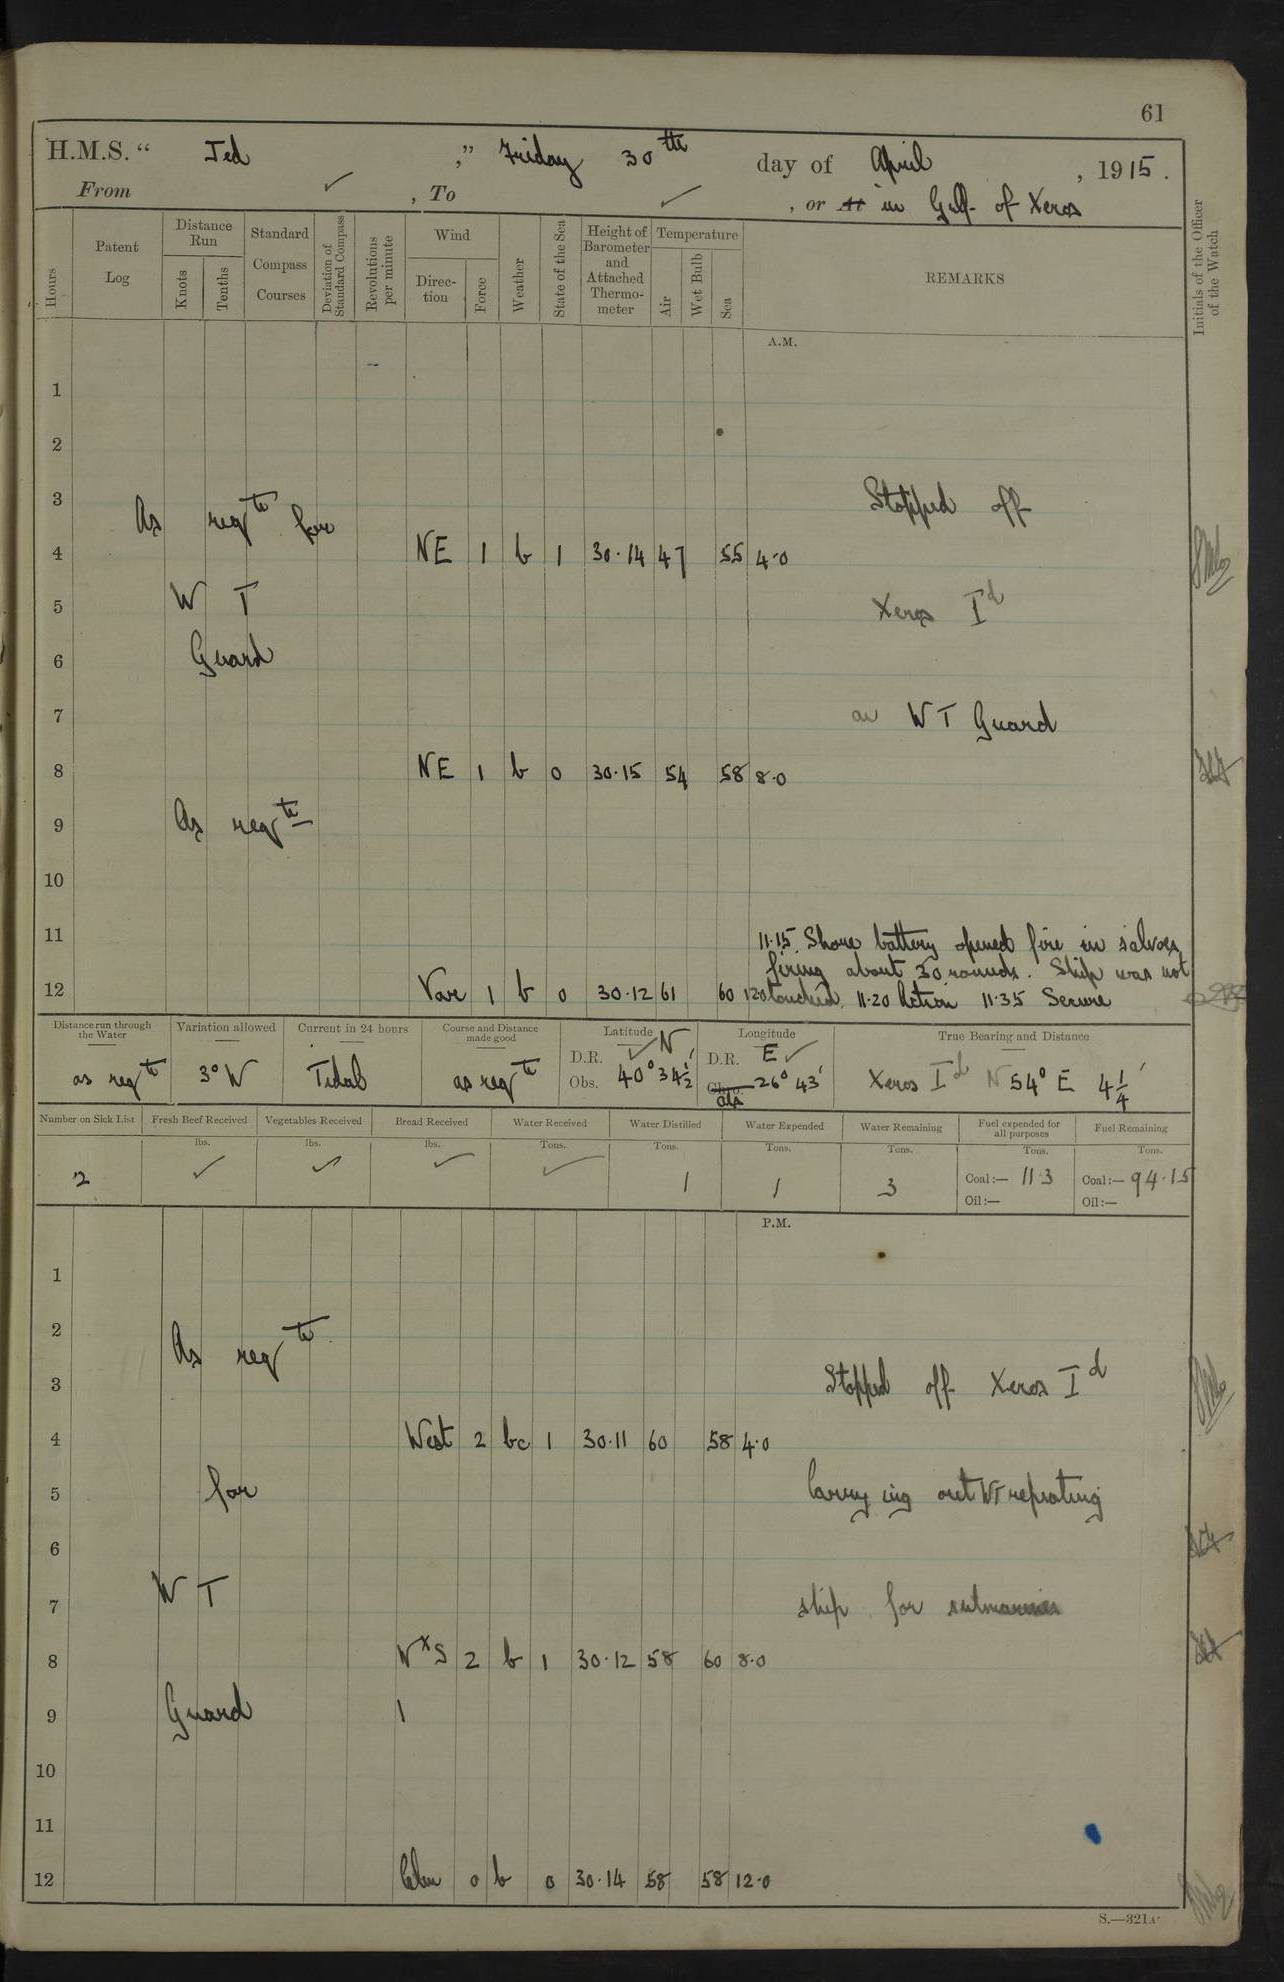 61
H.M.S. " Jed ," Friday 30th day of April , 1915.
From ✓ , To ✓ , or At in Gulf of Xeros
Hours
Patent Log
Distance Run
Knots
Tenths
Standard Compass Courses
Deviation of Standard Compass
Revolutions per minute
Wind
Direction
Force
Weather
State of the Sea
Height of Barometer and Attached Thermometer
Temperature
Air
Wet Bulb
Sea
REMARKS
Initials of the Officer of the Watch
A.M.
1
2
3 Stopped off
As reqte for
4 NE 1 b 1 30.14 47 55 4.0
5 W T Xeros Id
6 Guard
7 as W T Guard
8 NE 1 b 0 30.15 54 58 8.0
9 As reqte
10
11 11.15 Shore battery opened fire in salvoes
firing about 30 rounds. Ship was not
12 Var 1 b 0 30.12 61 60 120 touched 11.20 Action 11.35 Secure
Distance run through the Water
Variation allowed
Current in 24 hours
Course and Distance made good
Latitude N
Longitude
True Bearing and Distance
D.R. ✓ D.R. E ✓
as reqte 3° W Tidal as reqte Obs. 40° 34½' Chro. obs 26° 43' Xeros Id N 54° E 4¼'
Number on Sick List
Fresh Beef Received
Vegetables Received
Bread Received
Water Received
Water Distilled
Water Expended
Water Remaining
Fuel expended for all purposes
Fuel Remaining
lbs. lbs. lbs. Tons. Tons. Tons. Tons. Tons. Tons.
2 ✓ ✓ ✓ ✓ 1 1 3 Coal:— 11.3 Coal:— 94.15
Oil:— Oil:—
P.M.
1
2 As reqte
3 Stopped off Xeros Id
4 West 2 bc 1 30.11 60 58 4.0
5 for Carrying out WT repeating
6
7 W T ship for submarines
8 WxS 2 b 1 30.12 58 60 8.0
9 Guard 1
10
11
12 Calm 0 b 0 30.14 58 58 12.0
S.—321A.